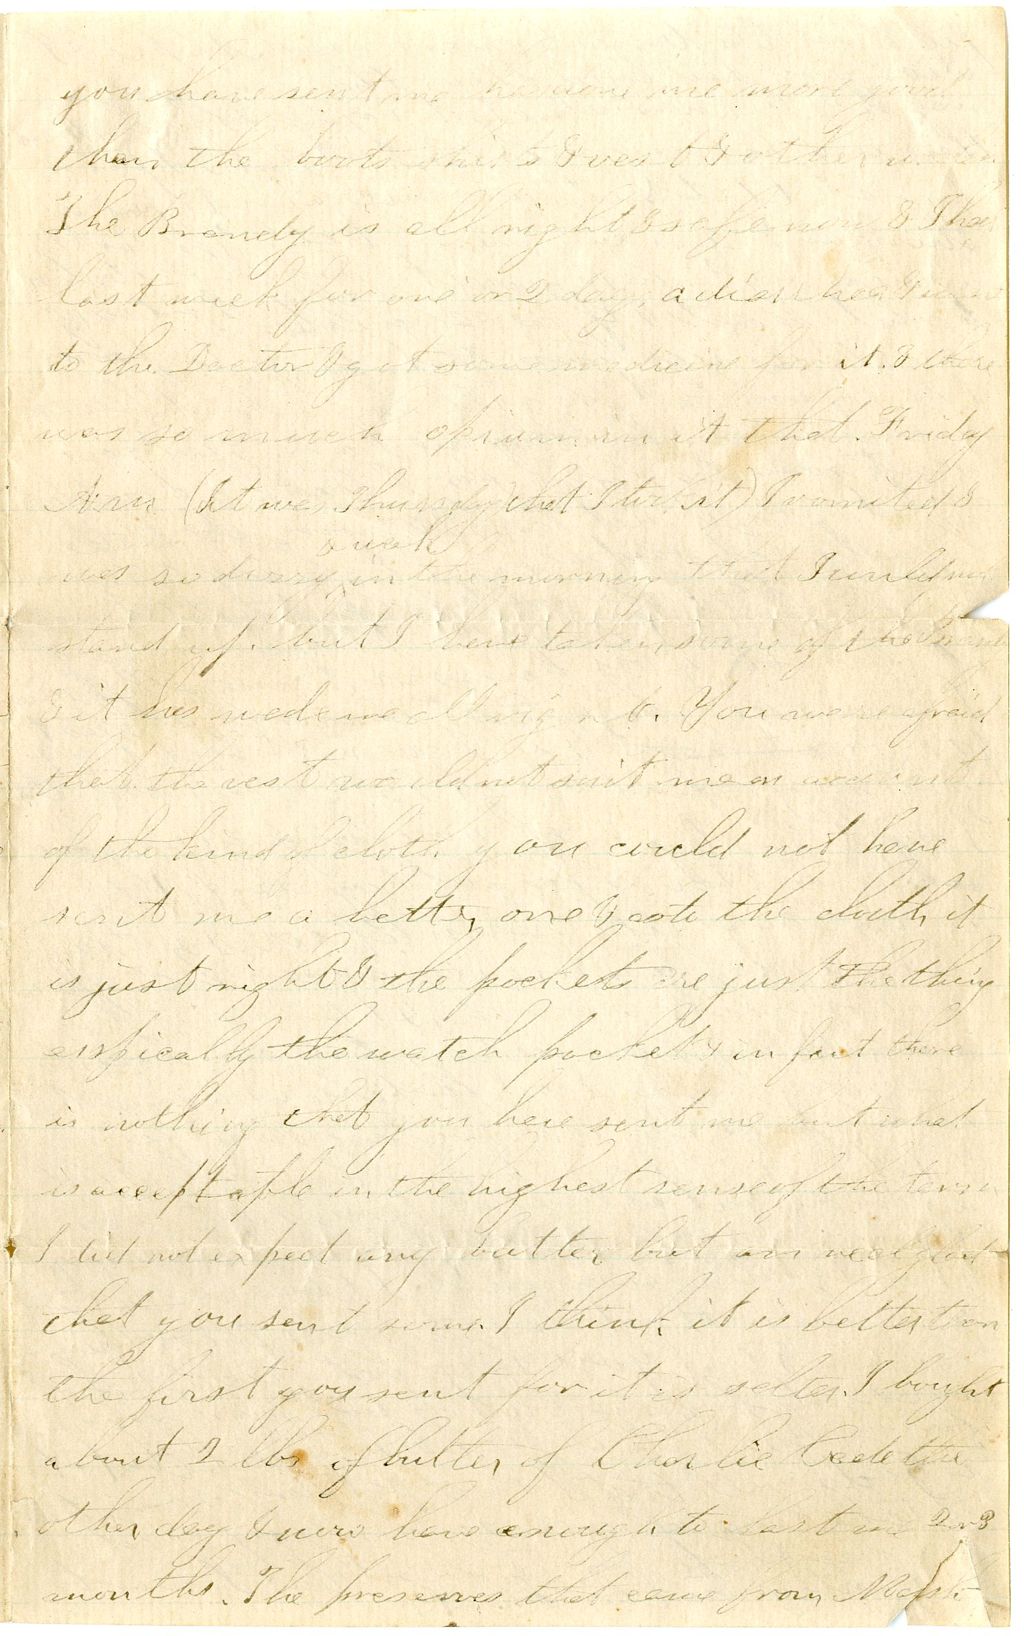 you have sent me has done me more good
than the boots shirts & vest & other
The Brandy is all right & safe now & I had
last week for one or 2 days a diarrhea & went
to the Doctor & got some medicine for it. & there
was so much opium in it that Friday
A.M. (It was Thursday that I took it) I vomited &
& weak
was so dizzy in the morning that I could not
stand up. but I have taken some of the Brandy
& it has made me all right. You were afraid
that the vest would not suit me on account
of the kind of cloth you could not have
sent me a better one & as to the cloth it
is just right & the pockets are just the thing
espically the watch pocket & in fact there
is nothing that you have sent me but what
is acceptable in the highest sense of the term
I did not expect any butter but am real glad
that you sent some. I think it is better than
the first you sent for it is salter. I bought
about 2 lbs of butter of Charlie Cade the
other day & now have enough to last me 2 or 3
months. The preserves that came from